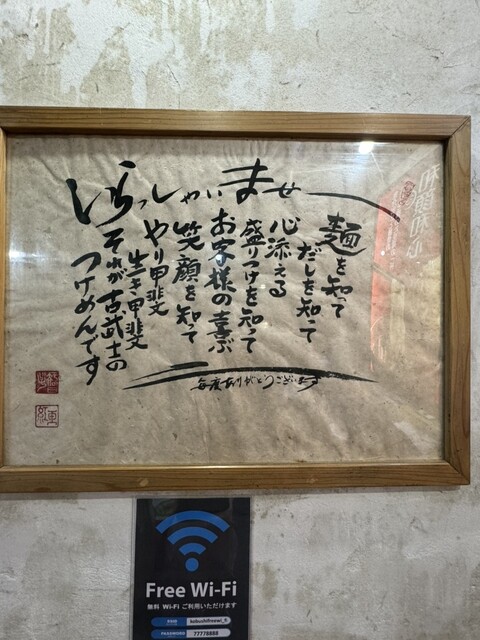 いらっしゃいませ
麺を知って
だしを知って
心添える
盛りつけを知って
お客様の喜ぶ
笑顔を知って
やり甲斐
生き甲斐
それが古武士の
つけめんです
毎度ありがとうございます
Free Wi-Fi
無料 Wi-Fi ご利用いただけます
SSID
kobushifreewi_fi
PASSWORD
77779888